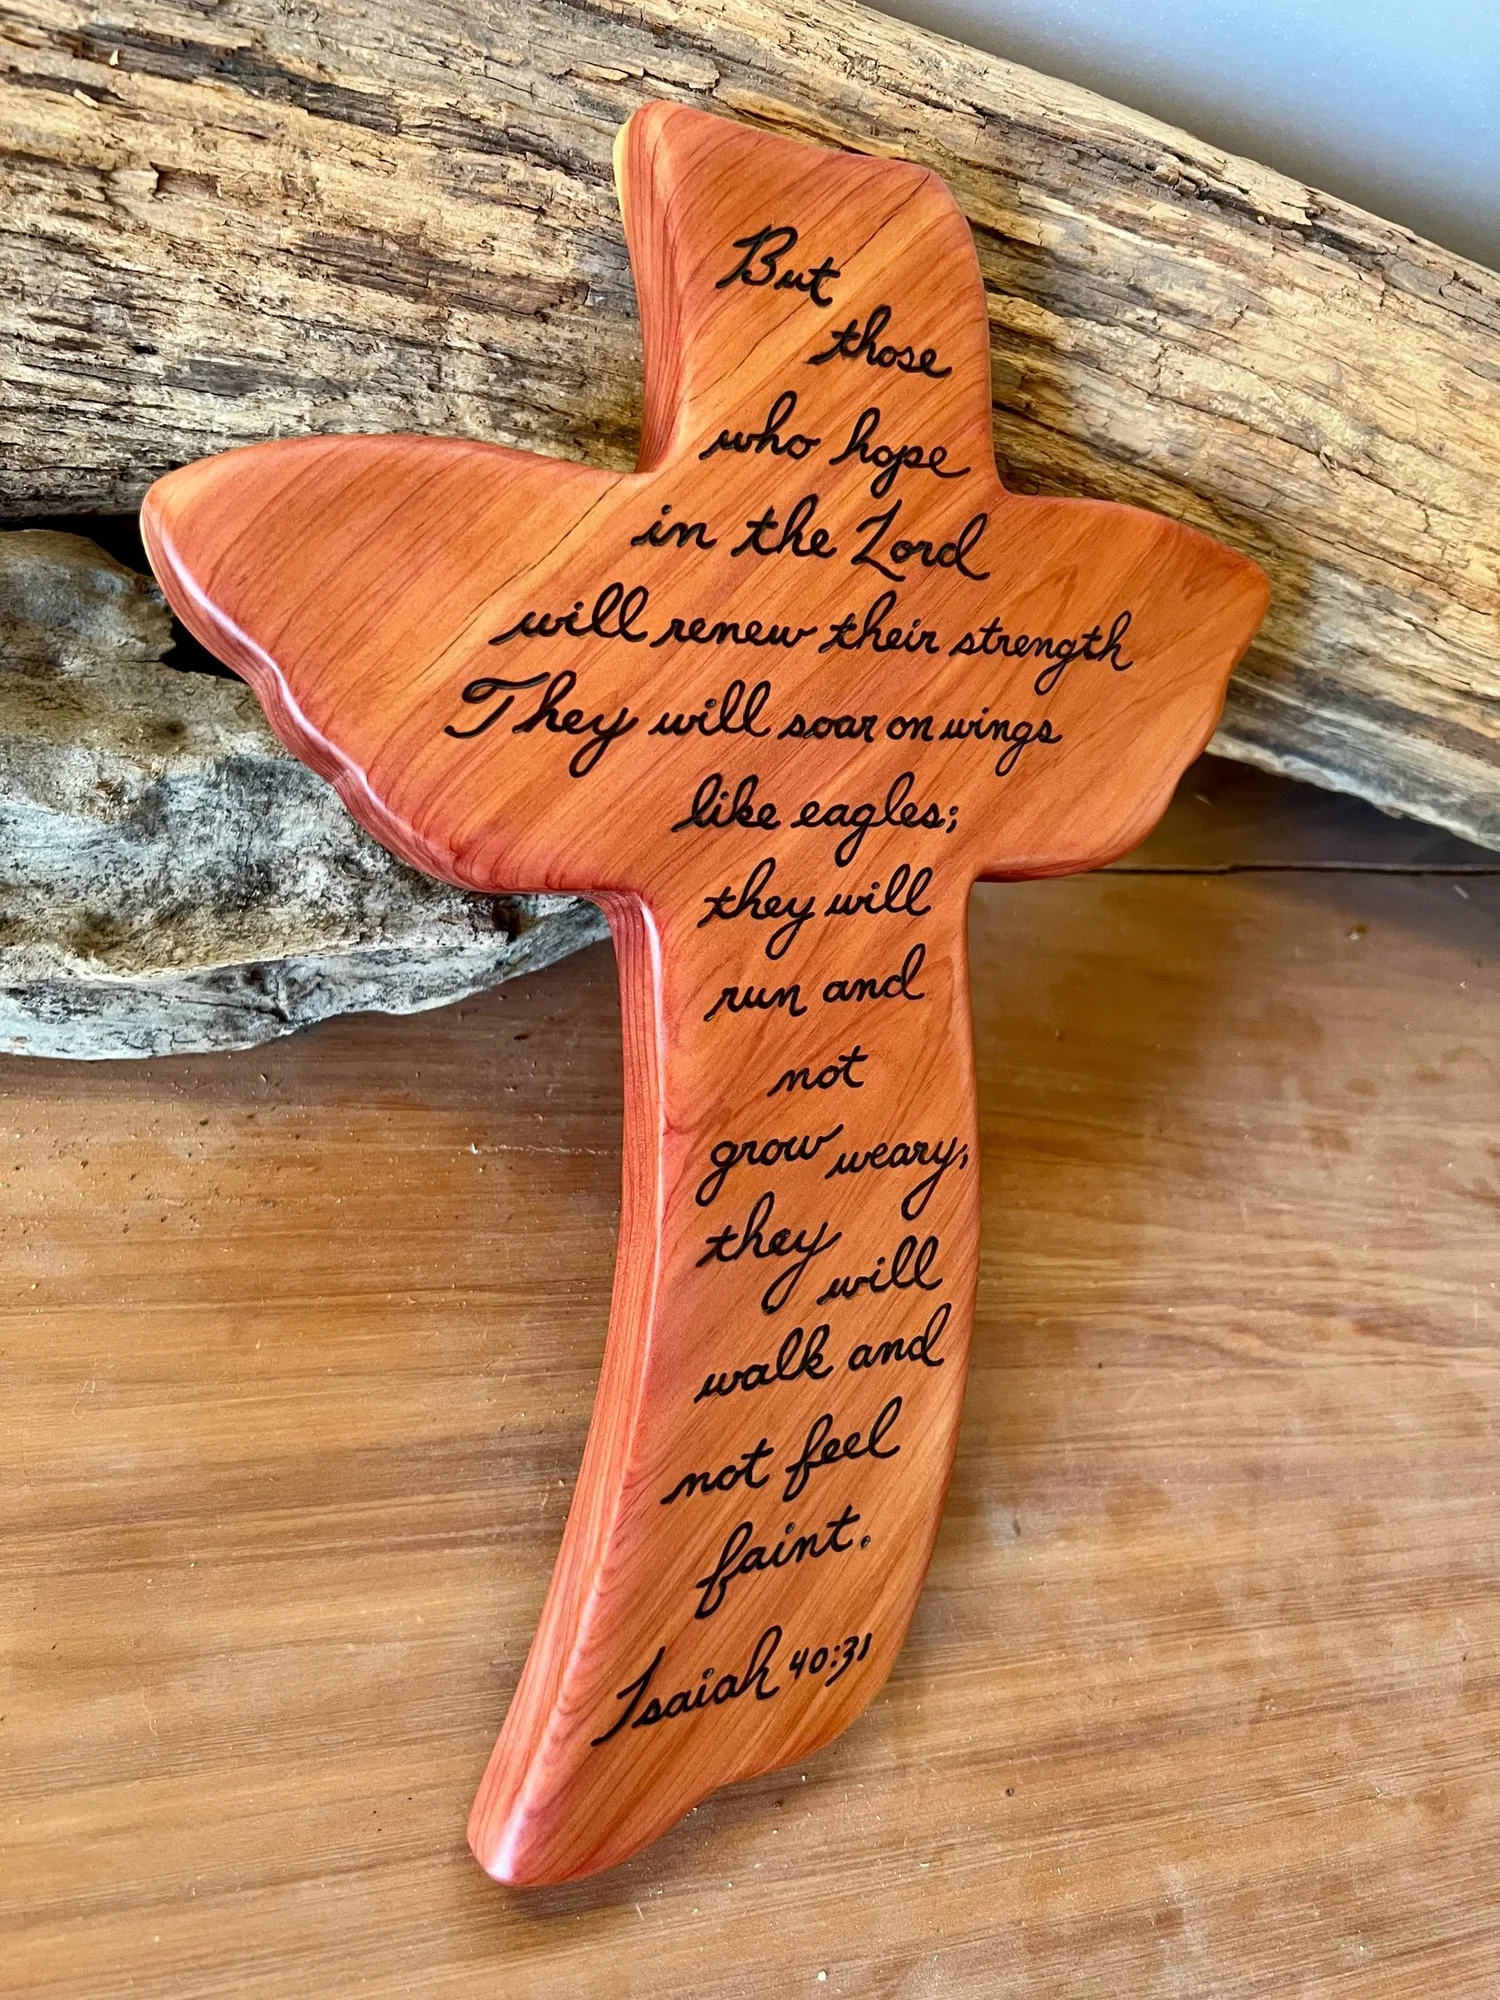 But
those
who hope
in the Lord
will renew their strength
They will soar on wings
like eagles;
they will
run and
not
grow weary;
they
will
walk and
not feel
faint.
Isaiah 40:31